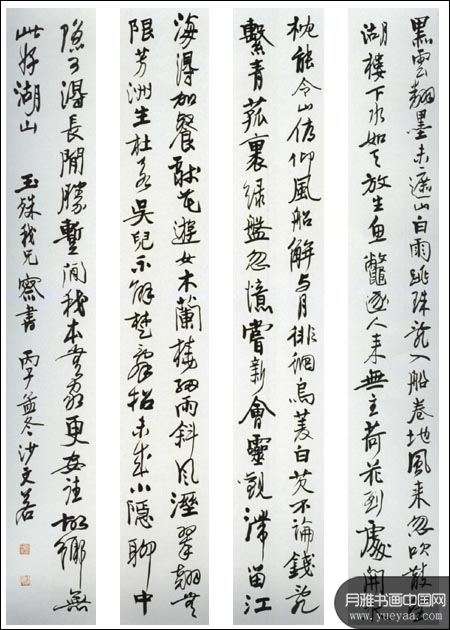 黑雲翻墨未遮山白雨跳珠亂入船卷地風来忽吹散望
湖樓下水如天放生魚鱉逐人来無主荷花到處開水
枕能令山俯仰風船解與月徘徊烏菱白芡不論錢亂
繫青菰裹綠盤忽憶嘗新會靈觀滯留江
海得加餐獻花遊女木蘭橈細雨斜風溼翠翹無
限芳洲生杜若吳兒不解楚辭招未成小隱聊中
隱可得長閒勝暫閒我本無家更安往故鄉無
此好湖山 我兄察書 丙子孟冬沙文若
月雅书画中国网
www.yueyaa.com